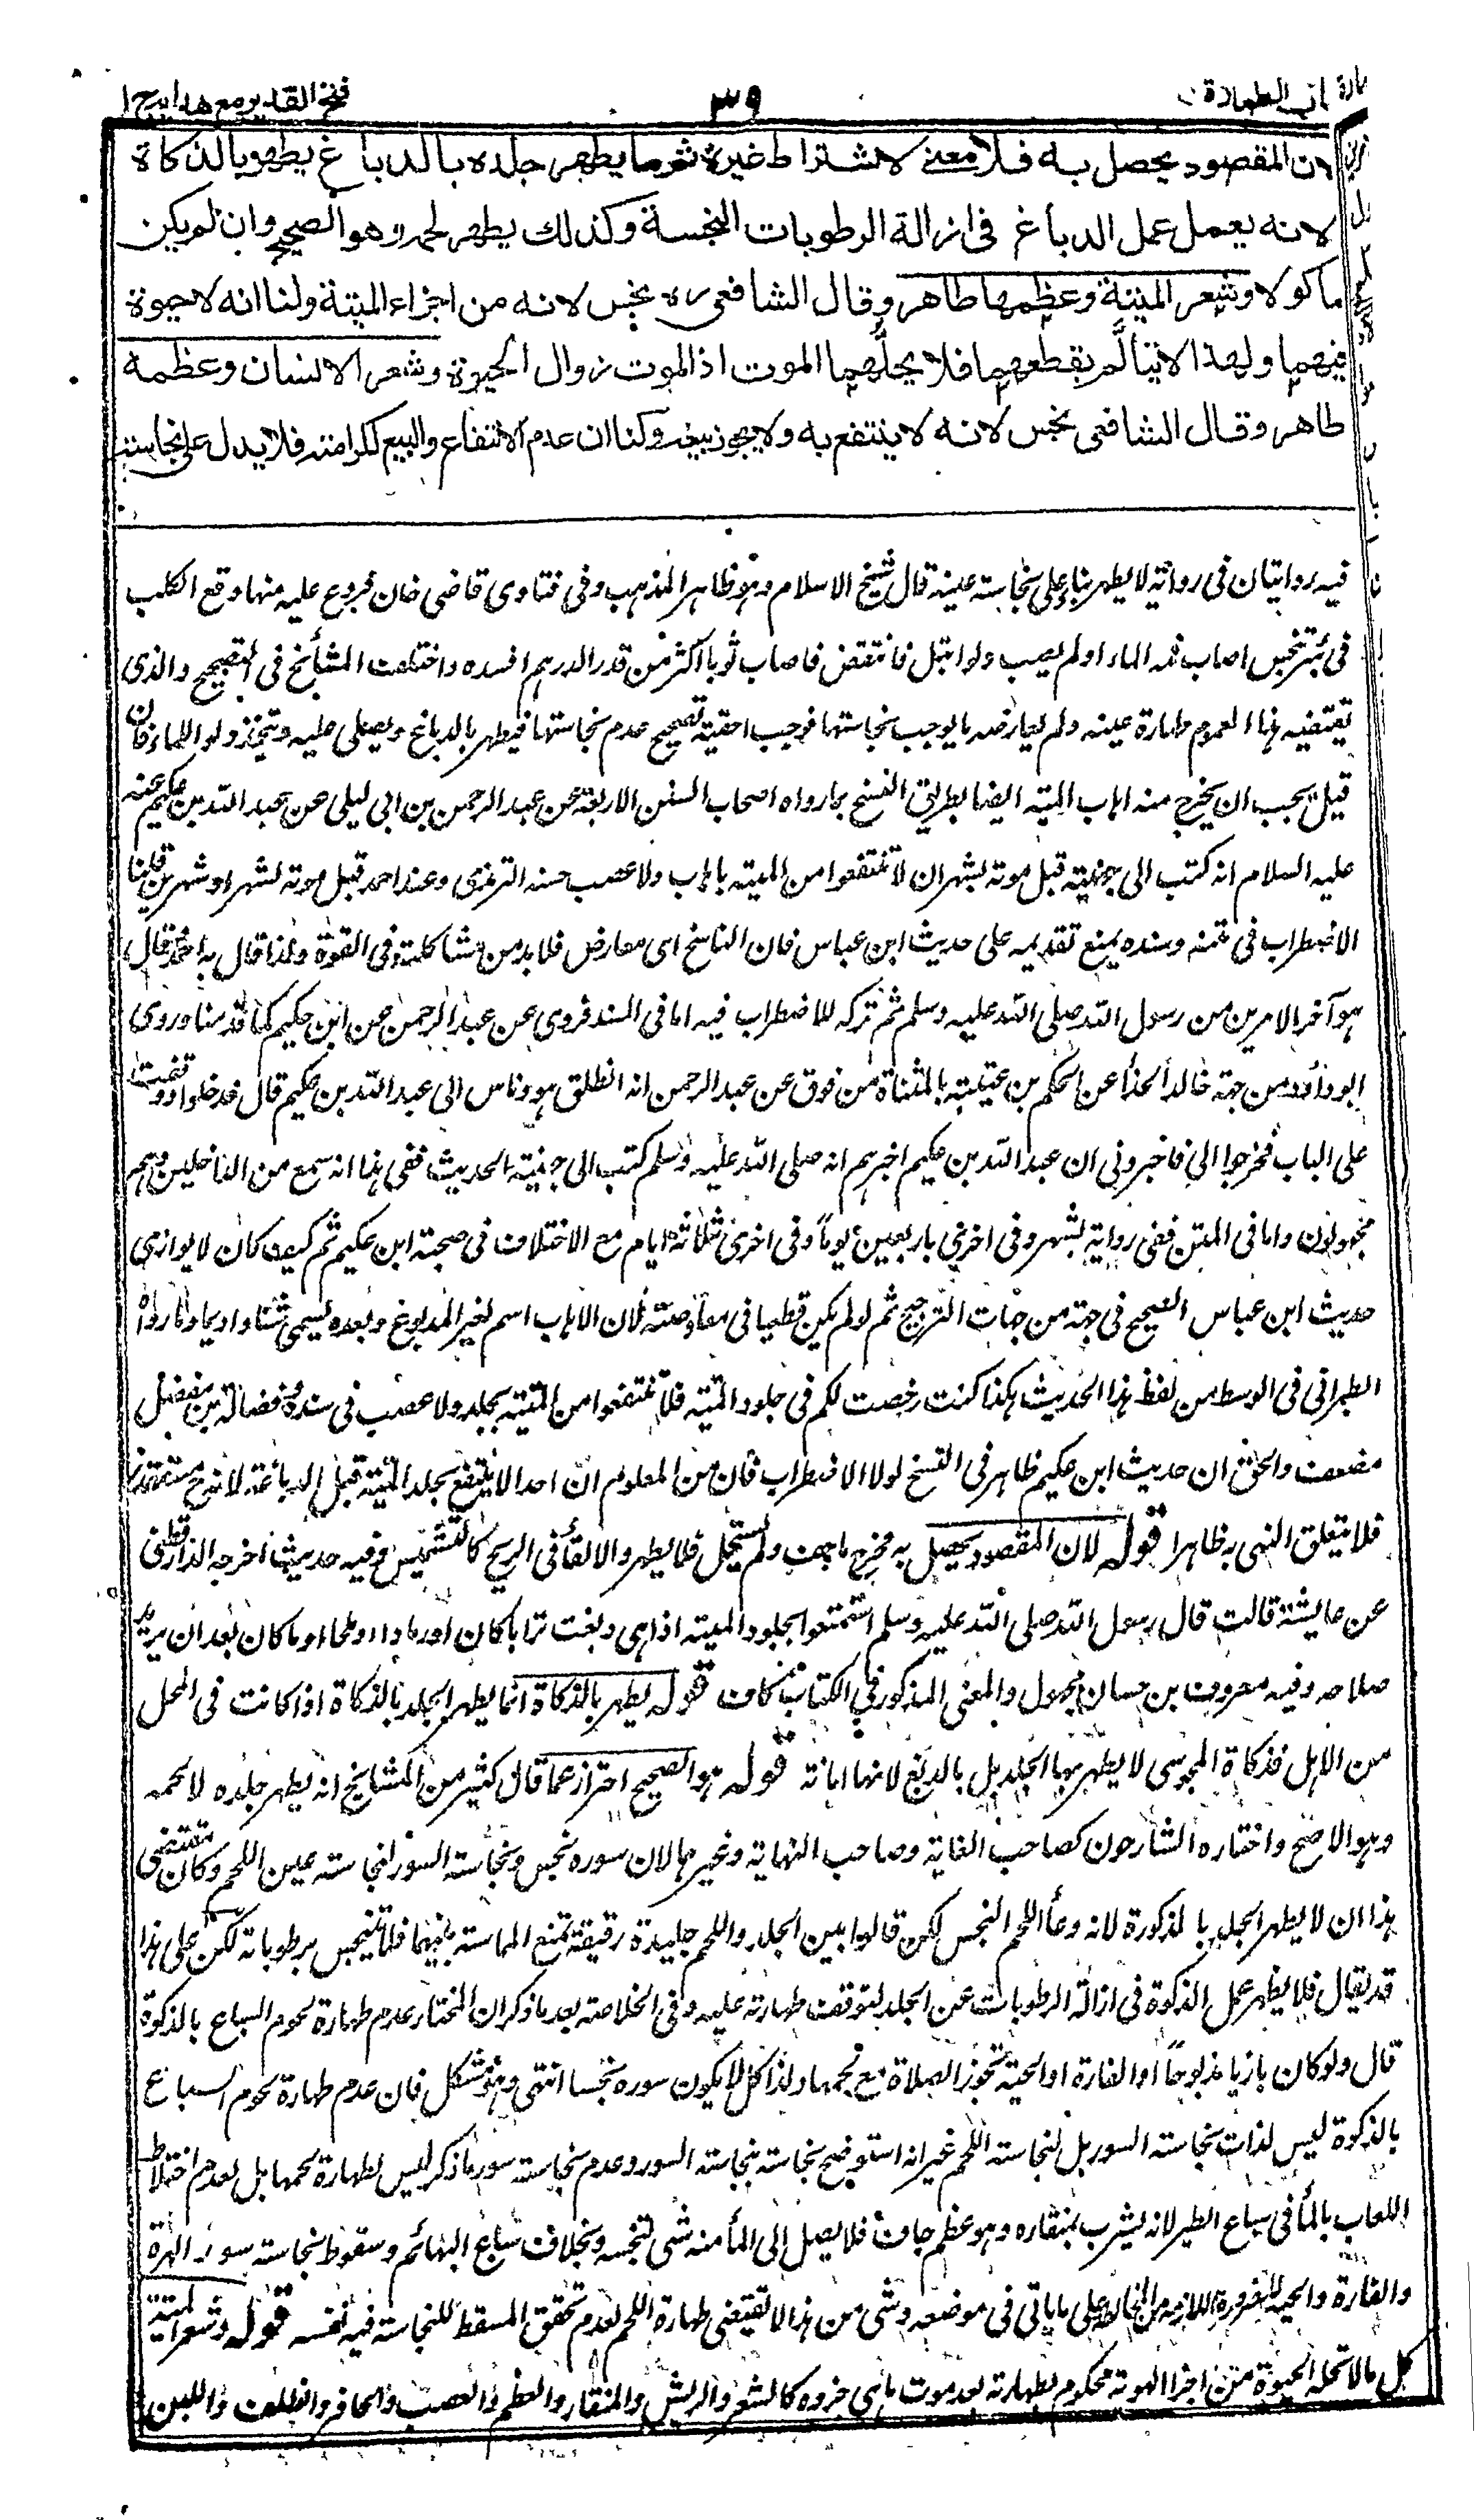 كتاب الطهارة
٣٩
فتح القدير مع هدايه ج ١
لان المقصود يحصل به فلا معنى لاشتراط غيره ثم ما يطهر جلده بالدباغ يطهر بالذكاة
لانه يعمل عمل الدباغ فى ازالة الرطوبات النجسة وكذلك يطهر لحمه وهو الصحيح وان لم يكن
ماكولا وشعر الميتة وعظمها طاهر وقال الشافعى ره نجس لانه من اجزاء الميتة ولنا انه لا حيوة
فيهما ولهذا لا يتألم بقطعهما فلا يحلهما الموت اذ الموت زوال الحيوة وشعر الانسان وعظمه
طاهر وقال الشافعى نجس لانه لا ينتفع به ولا يجوز بيعه ولنا ان عدم الانتفاع والبيع لكرامته فلا يدل على نجاسته
فيه روايتان فى رواية لا يطهر بناء على نجاسة عينه قال شيخ الاسلام وهو ظاهر المذهب وفى فتاوى قاضى خان فروع عليه منها وقع الكلب
فى بئر تنجس اصاب فمه الماء او لم يصب ولو ابتل فانتفض فاصاب ثوبا اكثر من قدر الدرهم افسده واختلفت المشائخ فى التصحيح والذى
يقتضيه هذا العموم طهارة عينه ولم يعارضه ما يوجب نجاستها فوجب احقية تصحيح عدم نجاستها فيطهر بالدباغ ويصلى عليه ويتخذ دلو الماء فان
قيل يجب ان يخرج منه اهاب الميتة ايضا بطريق النسخ بما رواه اصحاب السنن الاربعة عن عبد الرحمن بن ابى ليلى عن عبد الله بن عكيم عنه
عليه السلام انه كتب الى جهينة قبل موته بشهر ان لا تنتفعوا من الميتة باهاب ولا عصب حسنه الترمذى وعند احمد قبل موته بشهر او شهرين قلنا
الاضطراب فى متنه وسنده يمنع تقديمه على حديث ابن عباس فان الناسخ اى معارض فلا بد من مشاكلته فى القوة ولذا قال به احمد وقال
هو آخر الامرين من رسول الله صلى الله عليه وسلم ثم تركه للاضطراب فيه اما فى السند فروى عن عبد الرحمن عن ابن عكيم كما قدمنا وروى
ابو داؤد من جهة خالد الحذاء عن الحكم بن عتيبة بالمثناة من فوق عن عبد الرحمن انه انطلق هو وناس الى عبد الله بن عكيم قال فدخلوا ووقفت
على الباب فخرجوا الى فاخبرونى ان عبد الله بن عكيم اخبرهم انه صلى الله عليه وسلم كتب الى جهينة الحديث ففى هذا انه سمع من الداخلين وهم
مجهولون واما فى المتن ففى رواية بشهر وفى اخرى باربعين يوما وفى اخرى بثلاثة ايام مع الاختلاف فى صحبة ابن عكيم ثم كيف كان لا يوازى
حديث ابن عباس الصحيح فى جهة من جهات الترجيح ثم لو لم يكن قطعيا فى معارضته لان الاهاب اسم لغير المدبوغ وبعده يسمى شنا واديما وما رواه
الطبرانى فى الوسط من لفظ هذا الحديث هكذا كنت رخصت لكم فى جلود الميتة فلا تنتفعوا من الميتة بجلد ولا عصب فى سنده فضالة بن مفضل
مضعف والحق ان حديث ابن عكيم ظاهر فى النسخ لولا الاضطراب فان من المعلوم ان احدا لا ينتفع بجلد الميتة قبل الدباغة لانه ح مستقذر
فلا يتعلق النهى به ظاهرا قوله لان المقصود يحصل به مخرج ما جف ولم يستحل فلا يطهر والالقاء فى الريح كالتشميس وفيه حديث اخرجه الدارقطنى
عن عايشة قالت قال رسول الله صلى الله عليه وسلم استمتعوا بجلود الميتة اذا هى دبغت ترابا كان او رمادا او ملحا او ما كان بعد ان يريد
صلاحه وفيه معروف بن حسان مجهول والمعنى المذكور فى الكتاب كاف قوله يطهر بالذكاة انما يطهر الجلد بالذكاة اذا كانت فى المحل
من الاهل فذكاة المجوسى لا يطهر بها الجلد بل بالدبغ لانها اماتة قوله هو الصحيح احتراز عما قال كثير من المشايخ انه يطهر جلده لا لحمه
وهو الاصح واختاره الشارحون كصاحب الغاية وصاحب النهاية وغيرهما لان سوره نجس ونجاسة السور لنجاسة عين اللحم وكان مقتضى
هذا ان لا يطهر الجلد بالذكورة لانه وعاء اللحم النجس لكن قالوا بين الجلد واللحم جليدة رقيقة تمنع المماسة بينهما فلا يتنجس برطوباته لكن على هذا
قد يقال فلا يظهر عمل الذكوة فى ازالة الرطوبات عن الجلد ليتوقف طهارته عليه وفى الخلاصة بعد ما ذكر ان المختار عدم طهارة لحوم السباع بالذكوة
قال ولو كان بازيا مذبوحا او الفارة او الحية تجوز الصلاة مع لحمها ولذا كل لا يكون سوره نجسا انتهى وهو مشكل فان عدم طهارة لحوم السباع
بالذكوة ليس لذات نجاسة السور بل لنجاسة اللحم غير انه استوضح نجاسته بنجاسة السور وعدم نجاسة سور ما ذكر ليس لطهارة لحمها بل لعدم اختلاط
اللعاب بالماء فى سباع الطير لانه يشرب بمنقاره وهو عظم جاف فلا يصل الى الماء منه شئ لتنجسه وبخلاف سباع البهائم وسقوط نجاسة سور الهرة
والفارة والحية للضرورة اللازمة من المخالطة على ما ياتى فى موضعه وشئ من هذا لا يقتضى طهارة اللحم لعدم تحقق المسقط للنجاسة فيه نفسه قوله وشعر الميتة
كل ما لا تحله الحيوة من اجزاء الهوية محكوم بطهارته بعد موت ما هى جزوه كالشعر والريش والمنقار والعظم والعصب والحافر والظلف واللبن